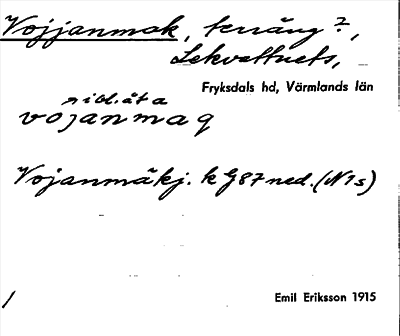 Vojjanmak, terräng?,
Lekvattnets,
Fryksdals hd, Värmlands län
vojanmaq
Vojanmäkj. k G87 ned. (N1s)
Emil Eriksson 1915
/